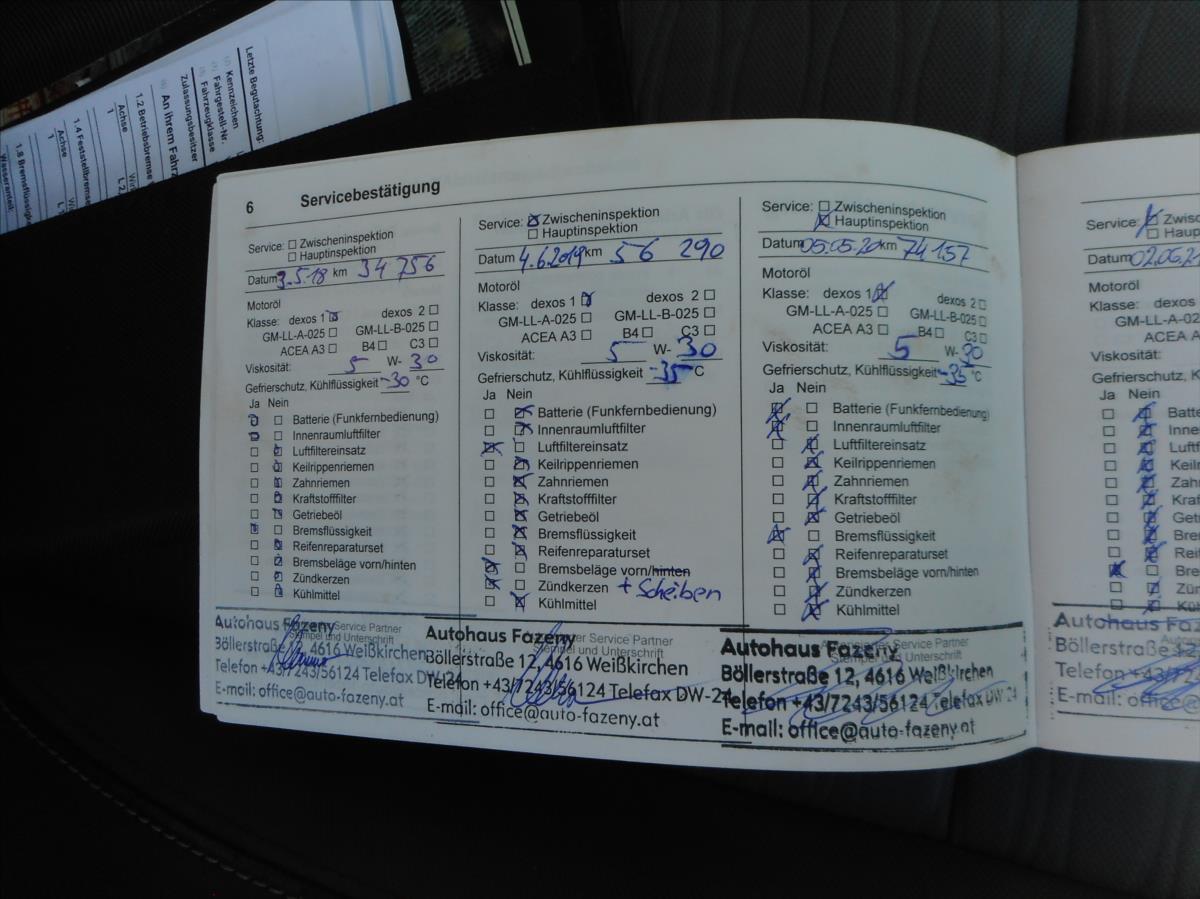 Letzte Begutachtung:
Kennzeichen
Fahrgestell-Nr.
Fahrzeugklasse
Zulassungsbesitzer
An ihrem Fahrz
1.2 Betriebsbremse
Achse
1
1.4 Feststellbremse
Achse
1
1.8 Bremsflüssigke
Wasseranteil:
6 Servicebestätigung
Service: ☐ Zwischeninspektion
☐ Hauptinspektion
Datum 3.5.18 km 34 756
Motoröl
Klasse: dexos 1 ☒ dexos 2 ☐
GM-LL-A-025 ☐ GM-LL-B-025 ☐
ACEA A3 ☐ B4 ☐ C3 ☐
Viskosität: 5 W- 30
Gefrierschutz, Kühlflüssigkeit -30 °C
Ja Nein
☒ ☐ Batterie (Funkfernbedienung)
☒ ☐ Innenraumluftfilter
☐ ☒ Luftfiltereinsatz
☐ ☒ Keilrippenriemen
☐ ☒ Zahnriemen
☐ ☒ Kraftstofffilter
☐ ☒ Getriebeöl
☒ ☐ Bremsflüssigkeit
☐ ☒ Reifenreparaturset
☐ ☒ Bremsbeläge vorn/hinten
☐ ☒ Zündkerzen
☐ ☒ Kühlmittel
Service Partner
Stempel und Unterschrift
Autohaus Fazeny
Böllerstraße 12, 4616 Weißkirchen
Telefon +43/7243/56124 Telefax DW-24
E-mail: office@auto-fazeny.at
Service: ☒ Zwischeninspektion
☐ Hauptinspektion
Datum 4.6.2019 km 56 290
Motoröl
Klasse: dexos 1 ☒ dexos 2 ☐
GM-LL-A-025 ☐ GM-LL-B-025 ☐
ACEA A3 ☐ B4 ☐ C3 ☐
Viskosität: 5 W- 30
Gefrierschutz, Kühlflüssigkeit -35 °C
Ja Nein
☐ ☒ Batterie (Funkfernbedienung)
☐ ☒ Innenraumluftfilter
☒ ☐ Luftfiltereinsatz
☐ ☒ Keilrippenriemen
☐ ☒ Zahnriemen
☐ ☒ Kraftstofffilter
☐ ☒ Getriebeöl
☐ ☒ Bremsflüssigkeit
☐ ☒ Reifenreparaturset
☒ ☐ Bremsbeläge vorn/hinten
☒ ☐ Zündkerzen + Scheiben
☐ ☒ Kühlmittel
Service Partner
Autohaus Fazeny
Böllerstraße 12, 4616 Weißkirchen
Telefon +43/7243/56124 Telefax DW-24
E-mail: office@auto-fazeny.at
Service: ☐ Zwischeninspektion
☒ Hauptinspektion
Datum 05.05.20 km 74157
Motoröl
Klasse: dexos 1 ☒ dexos 2 ☐
GM-LL-A-025 ☐ GM-LL-B-025 ☐
ACEA A3 ☐ B4 ☐ C3 ☐
Viskosität: 5 W- 30
Gefrierschutz, Kühlflüssigkeit -35 °C
Ja Nein
☒ ☐ Batterie (Funkfernbedienung)
☒ ☐ Innenraumluftfilter
☐ ☒ Luftfiltereinsatz
☐ ☒ Keilrippenriemen
☐ ☒ Zahnriemen
☐ ☒ Kraftstofffilter
☐ ☒ Getriebeöl
☒ ☐ Bremsflüssigkeit
☐ ☒ Reifenreparaturset
☐ ☒ Bremsbeläge vorn/hinten
☐ ☒ Zündkerzen
☐ ☒ Kühlmittel
Service Partner
Stempel und Unterschrift
Autohaus Fazeny
Böllerstraße 12, 4616 Weißkirchen
Telefon +43/7243/56124 Telefax DW-24
E-mail: office@auto-fazeny.at
Service: ☒ Zwisc
☐ Haup
Datum 02.06.21
Motoröl
Klasse: dexos
GM-LL-A-02
ACEA A
Viskosität:
Gefrierschutz, Kühlflü
Ja Nein
☐ ☒ Batte
☐ ☒ Inne
☐ ☒ Luftf
☐ ☒ Keil
☐ ☒ Zahn
☐ ☒ Kraf
☐ ☒ Get
☐ ☒ Bre
☐ ☒ Rei
☒ ☐ Bre
☐ ☒ Zün
☐ ☒ Kü
Autohaus Faz
Böllerstraße 12
Telefon +43/724
E-mail: office